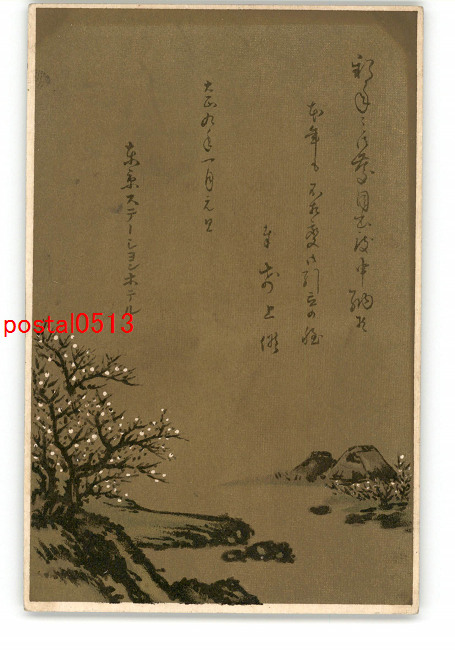 新年之御慶目出度申納候
本年も不相変御引立の程
奉希上候
大正九年一月元旦
東京ステーションホテル
postal0513